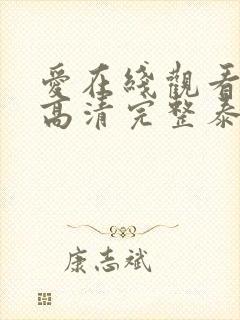 愛在綫觀看
高清完整泰
康志斌